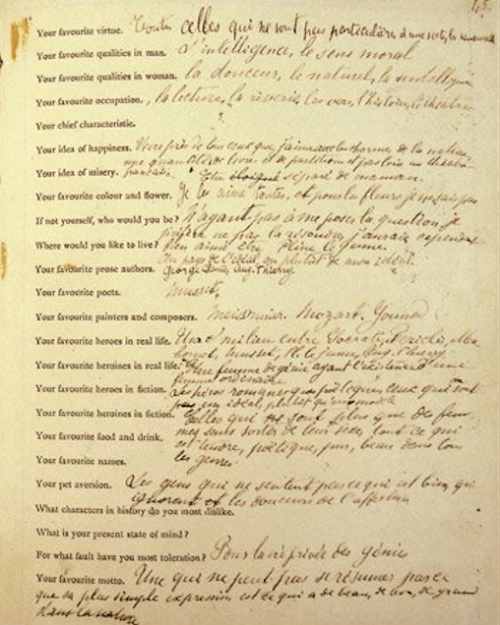 Your favourite virtue. Toutes celles qui ne sont pas particulières à une secte, les
Your favourite qualities in man. L'intelligence, le sens moral
Your favourite qualities in woman. la douceur, le naturel, l'intelligence
Your favourite occupation. la lecture, la rêverie, les vers, l'histoire, le théâtre
Your chief characteristic.
Your idea of happiness. Vivre près de tous ceux que j'aime avec les charmes de la nature,
une quantité de livres et de partitions et pas loin un théâtre
Your idea of misery. français. Etre séparé de maman.
Your favourite colour and flower. Je les aime toutes, et pour les fleurs je ne sais pas
If not yourself, who would you be? N'ayant pas à me poser la question, je
préfère ne pas la résoudre, j'aurais cependant
Where would you like to live? bien aimé être Pline le Jeune.
Au pays de l'idéal, ou plutôt de mon idéal.
Your favourite prose authors. George Sand, Aug. Thierry.
Your favourite poets. Musset.
Your favourite painters and composers. Meissonier. Mozart. Gounod
Your favourite heroes in real life. Un milieu entre Socrate, Périclès, Ma-
homet, Musset, Pline le Jeune, Aug. Thierry
Your favourite heroines in real life. Une femme de génie ayant l'existence d'une
femme ordinaire
Your favourite heroes in fiction. Les héros romanesques poétiques, ceux qui sont
un idéal plutôt qu'un modèle
Your favourite heroines in fiction. Celles qui sont plus que des fem-
mes sans sortir de leur sexe, tout ce qui
Your favourite food and drink. est tendre, poétique, pur, beau dans tous
Your favourite names. les genres
Your pet aversion. Les gens qui ne sentent pas ce qui est bien, qui
ignorent les douceurs de l'affection
What characters in history do you most dislike.
What is your present state of mind?
For what fault have you most toleration? Pour la vie privée des génies
Your favourite motto. Une qui ne peut pas se résumer parce
que sa plus simple expression est ce qui a de beau, de bon, de grand
dans la nature